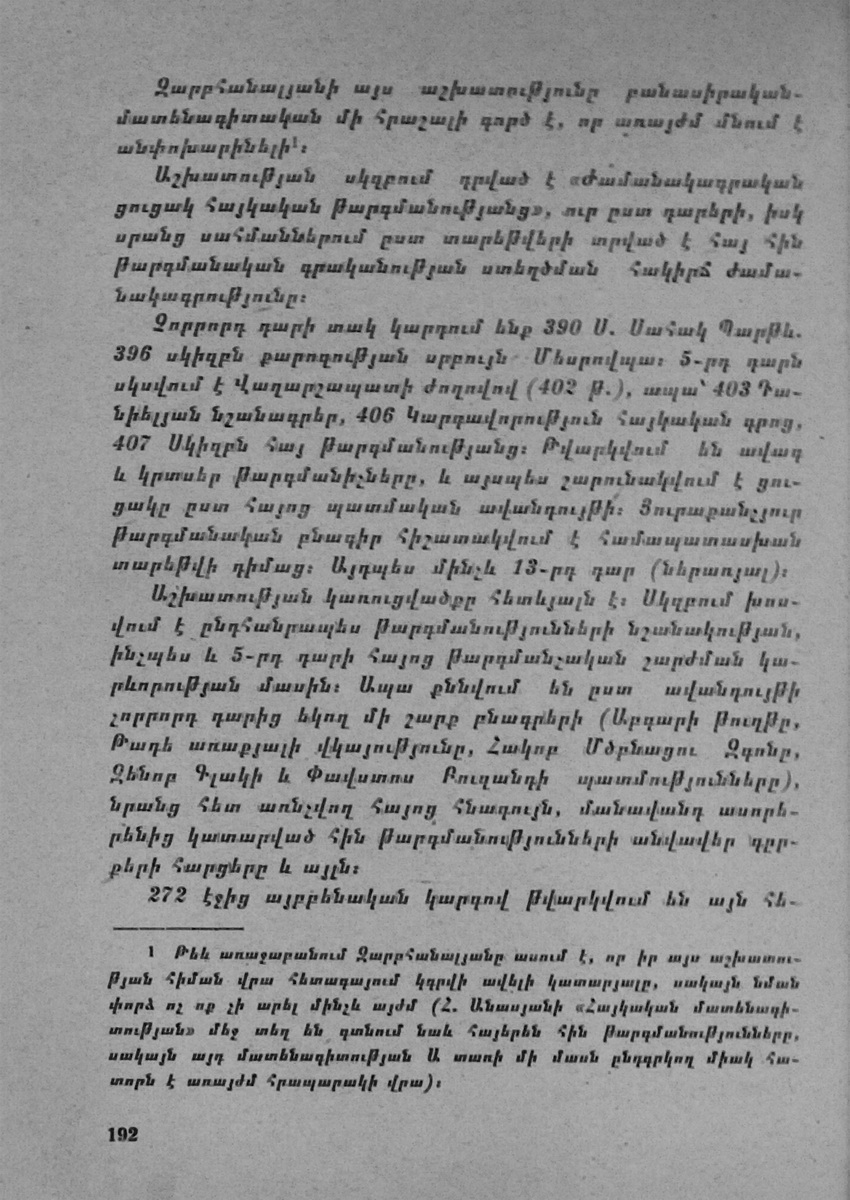 Զարբհանալյանի այս աշխատությունը բանասիրական-
մատենագիտական մի հրաշալի գործ է, որ առայժմ մնում է
անփոխարինելի¹։
Աշխատության սկզբում դրված է «Ժամանակագրական
ցուցակ հայկական թարգմանությանց», ուր ըստ դարերի, իսկ
սրանց սահմաններում ըստ տարեթվերի տրված է հայ հին
թարգմանական գրականության ստեղծման հակիրճ ժամա-
նակագրությունը։
Չորրորդ դարի տակ կարդում ենք 390 Ս. Սահակ Պարթև.
396 սկիզբն քարոզության սրբույն Մեսրովպա։ 5-րդ դարն
սկսվում է Վաղարշապատի ժողովով (402 թ.), ապա՝ 403 Դա-
նիելյան նշանագրեր, 406 Կարգավորություն հայկական գրոց,
407 Սկիզբն հայ թարգմանությանց։ Թվարկվում են ավագ
և կրտսեր թարգմանիչները, և այսպես շարունակվում է ցու-
ցակը ըստ հայոց պատմական ավանդույթի։ Յուրաքանչյուր
թարգմանական բնագիր հիշատակվում է համապատասխան
տարեթվի դիմաց։ Այդպես մինչև 13-րդ դար (ներառյալ)։
Աշխատության կառուցվածքը հետևյալն է։ Սկզբում խոս-
վում է ընդհանրապես թարգմանությունների նշանակության,
ինչպես և 5-րդ դարի հայոց թարգմանչական շարժման կա-
րևորության մասին։ Ապա քննվում են ըստ ավանդույթի
չորրորդ դարից եկող մի շարք բնագրերի (Աբգարի թուղթը,
Թադե առաքյալի վկայությունը, Հակոբ Մծբնացու Զգոնը,
Զենոբ Գլակի և Փավստոս Բուզանդի պատմությունները),
նրանց հետ առնչվող հայոց հնագույն, մանավանդ ասորե-
րենից կատարված հին թարգմանությունների անվավեր գըր-
քերի հարցերը և այլն։
272 էջից այբբենական կարգով թվարկվում են այն հե-
1 Թեև առաջաբանում Զարբհանալյանը ասում է, որ իր այս աշխատու-
թյան հիման վրա հետագայում կգրվի ավելի կատարյալը, սակայն նման
փորձ ոչ ոք չի արել մինչև այժմ (Հ. Անասյանի «Հայկական մատենագի-
տության» մեջ տեղ են գտնում նաև հայերեն հին թարգմանությունները,
սակայն այդ մատենագիտության Ա տառի մի մասն ընդգրկող միակ հա-
տորն է առայժմ հրապարակի վրա)։
192